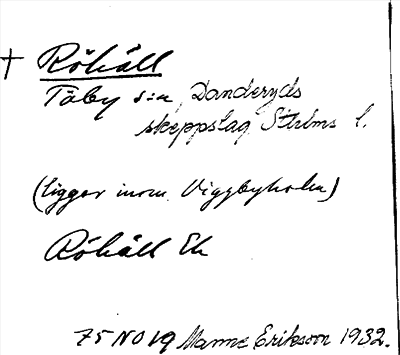 † Röhäll
Täby s:n, Danderyds
skeppslag Sthlms l.
(ligger inom Viggbyholm)
Röhäll Ek
75 NO 19 Manne Eriksson 1932.